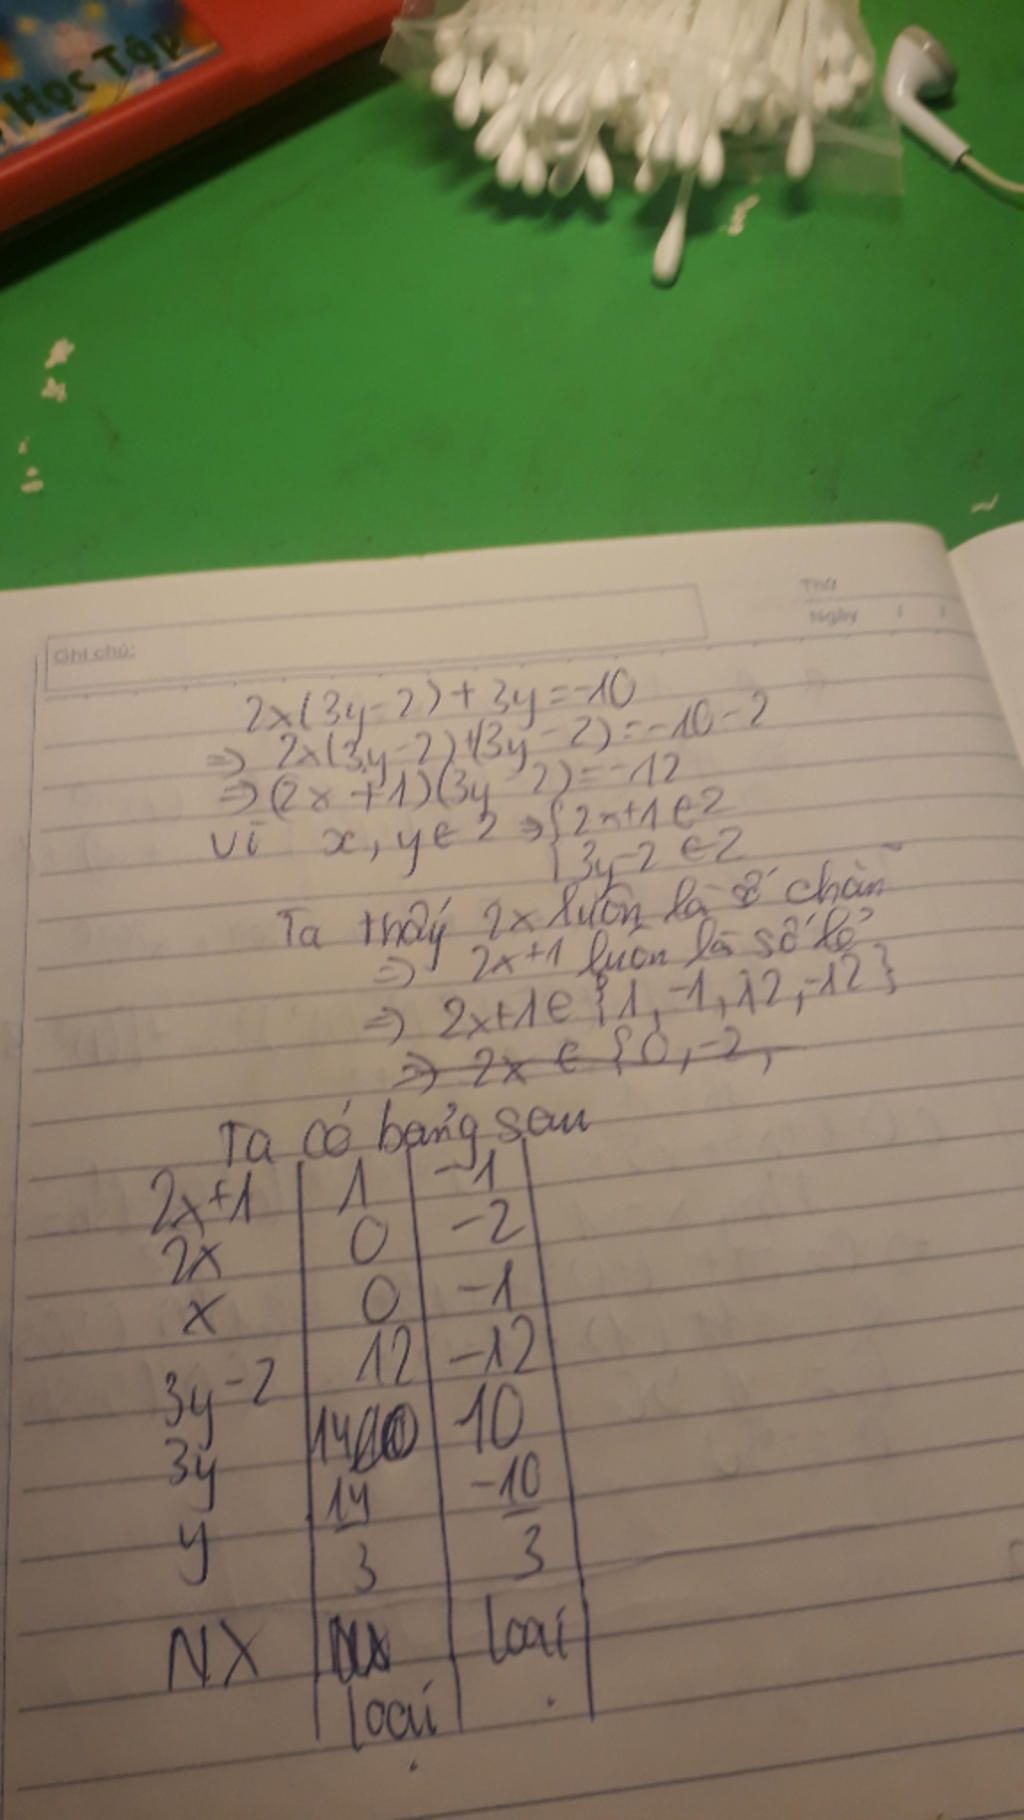 HỌC TẬP
Thứ
Ngày / /
Ghi chú:
2x(3y-2)+3y=-10
=> 2x(3y-2)+(3y-2)=-10-2
=> (2x+1)(3y-2)=-12
Vì x, y ∈ Z => { 2x+1 ∈ Z
3y-2 ∈ Z
Ta thấy 2x luôn là số chẵn
=> 2x+1 luôn là số lẻ
=> 2x+1 ∈ {1, -1, 12, -12}
=> 2x ∈ {0, -2,
Ta có bảng sau
2x+1 | 1 | -1
2x 0 -2
x 0 -1
3y-2 12 -12
3y 14 10
y 14/3 -10/3
NX loại
loại